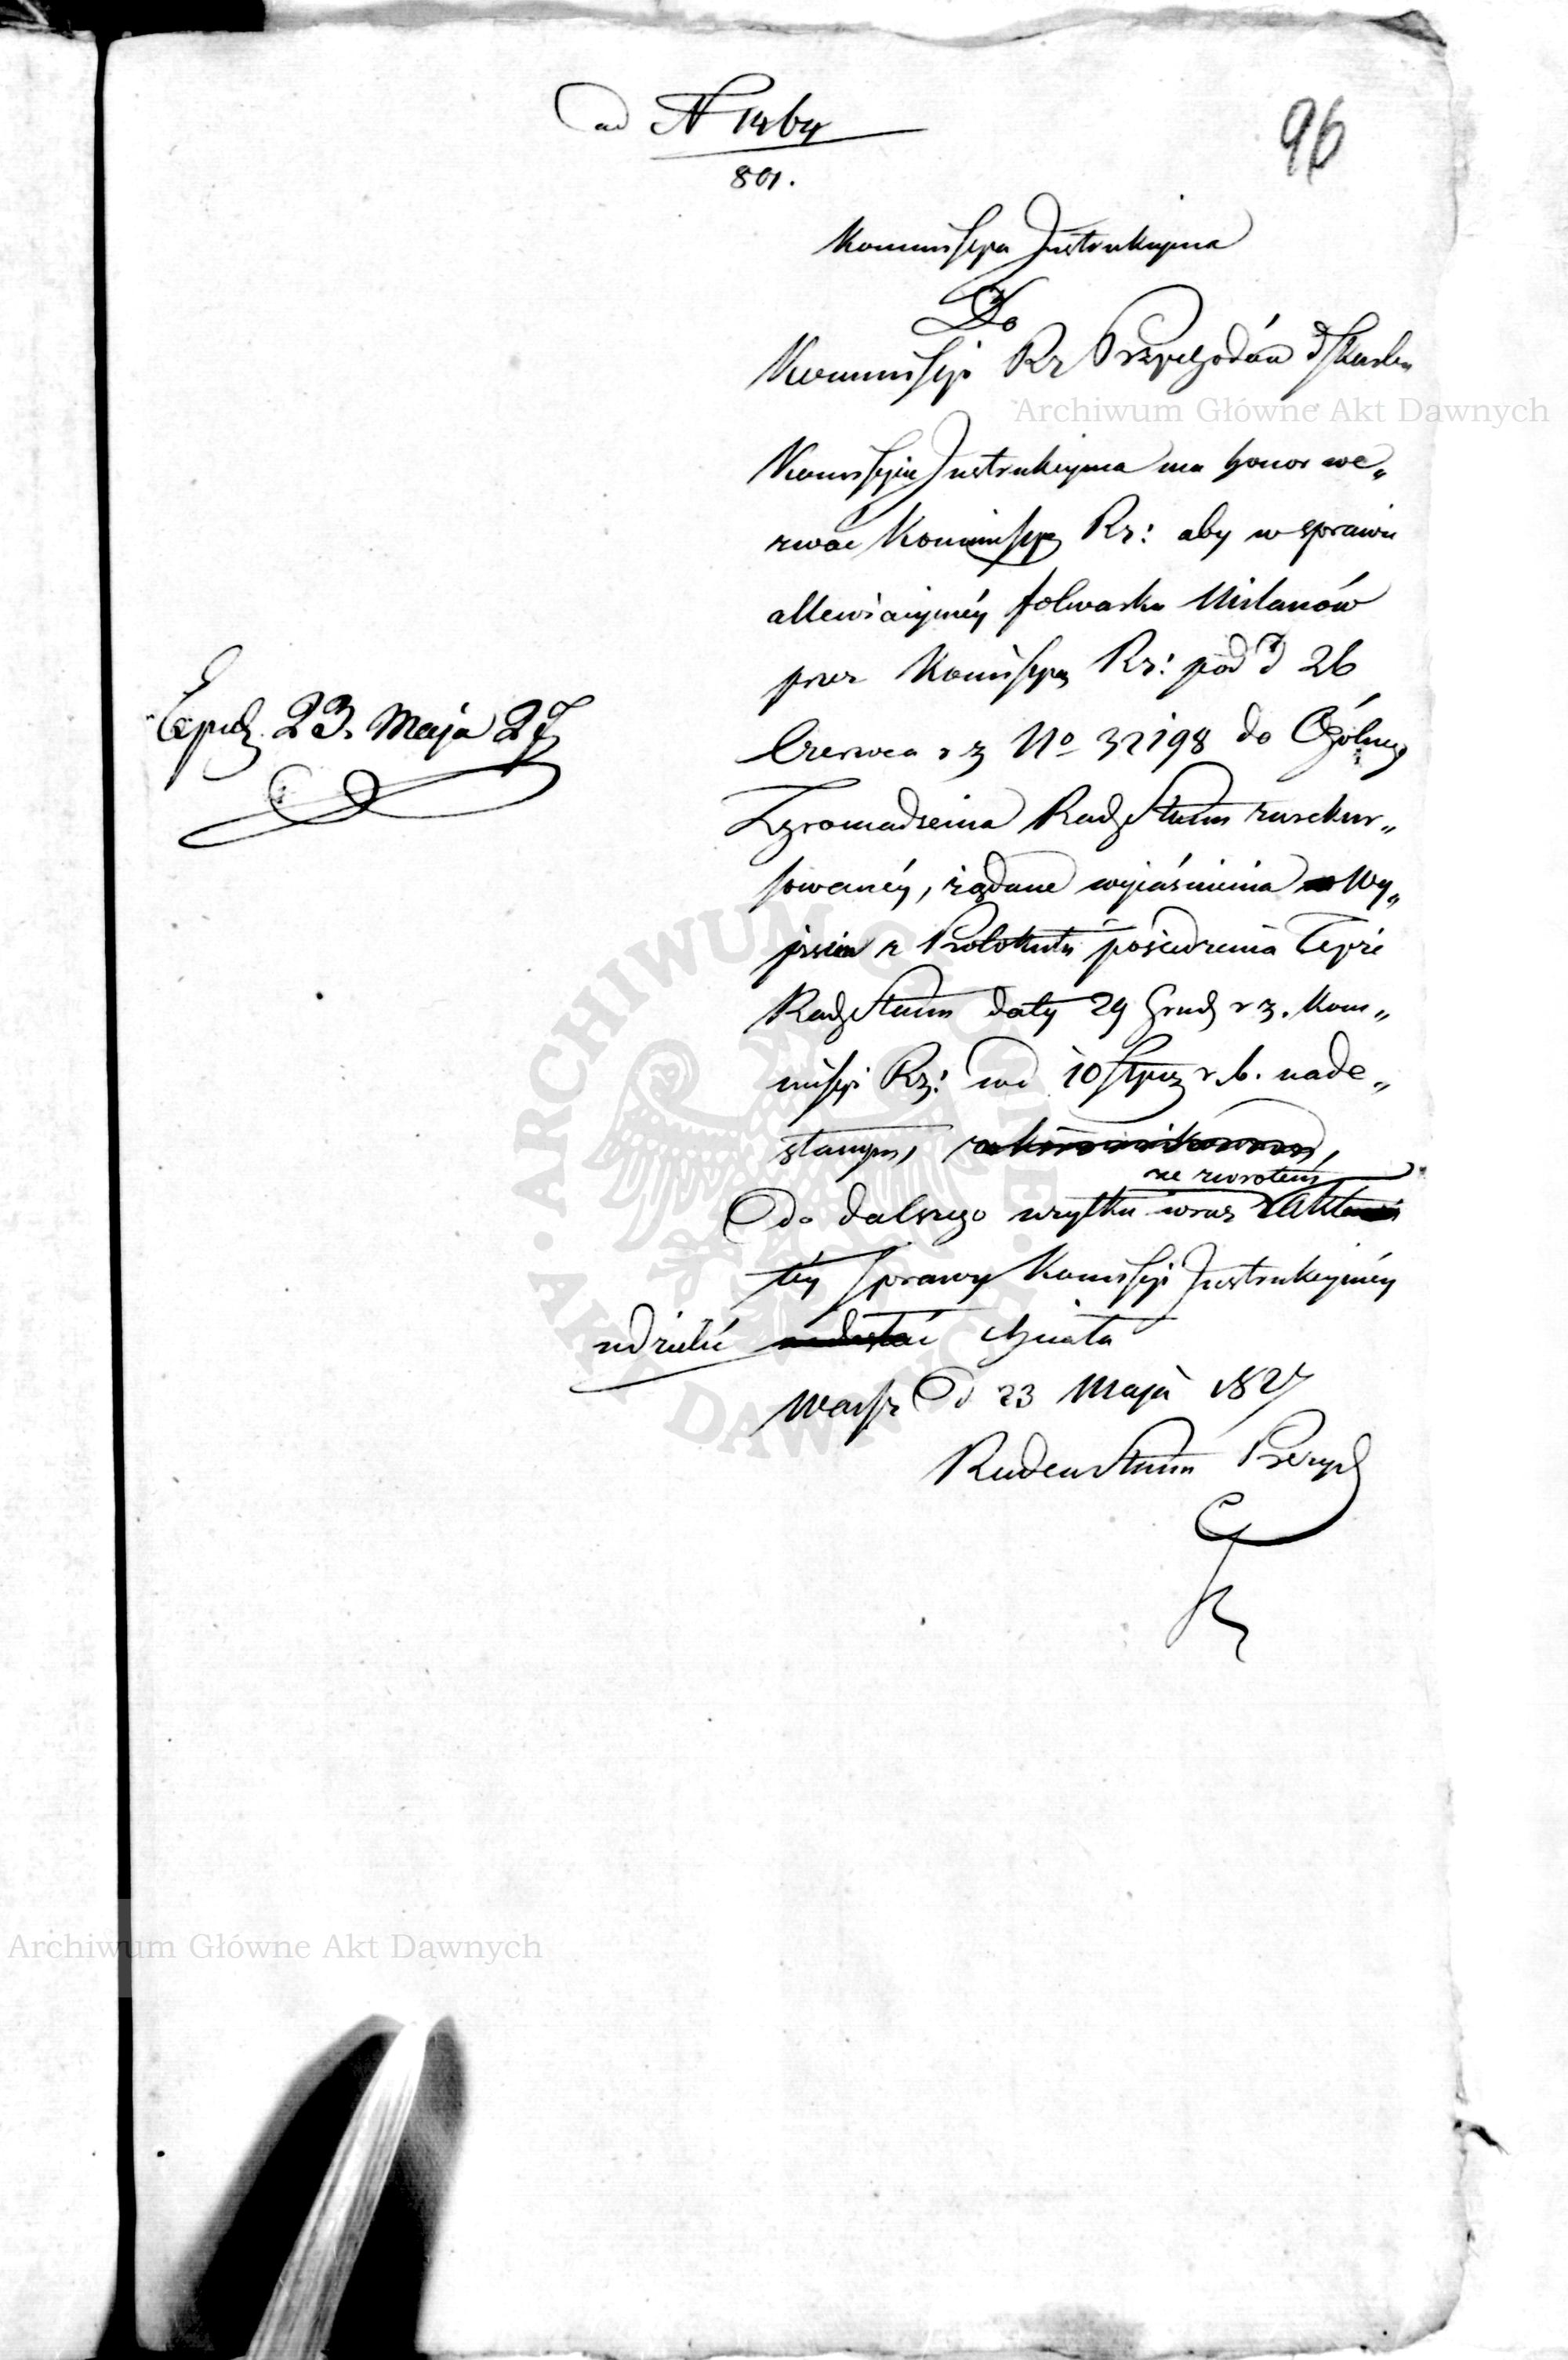 ad N 1464
801.
96
Kommissya Instrukcyjna
Do
Kommissyi Rz Przychodów i Skarbu
Archiwum Główne Akt Dawnych
Komissyia Instrukcyjna ma honor we„
zwać Kommissyę Rz: aby w sprawie
allewiacyjnéy folwarku Milanów
przez Komissyą Rz: pod d 26
Czerwca r z No 32198 do Ogólnego
Zgromadzenia Rady Stanu zarekur„
sowanéy, żądane wyjaśnienia Wy„
pisem z Protokułu posiedzenia Tejże
Rady Stanu daty 29 Grud r z. Kom„
missyi Rz: 10 Stycz r. b. nade„
słanym,
ze zwrotem
do dalszego użytku wraz
téy sprawy Komissyi Instrukcyjnéy
udzielić chciała
Warsz d 23 Maja 1827
Radca Stanu Prezyd
Exped. 23. Maja 27
ARCHIWUM GŁÓWNE
AKT DAWNYCH
Archiwum Główne Akt Dawnych